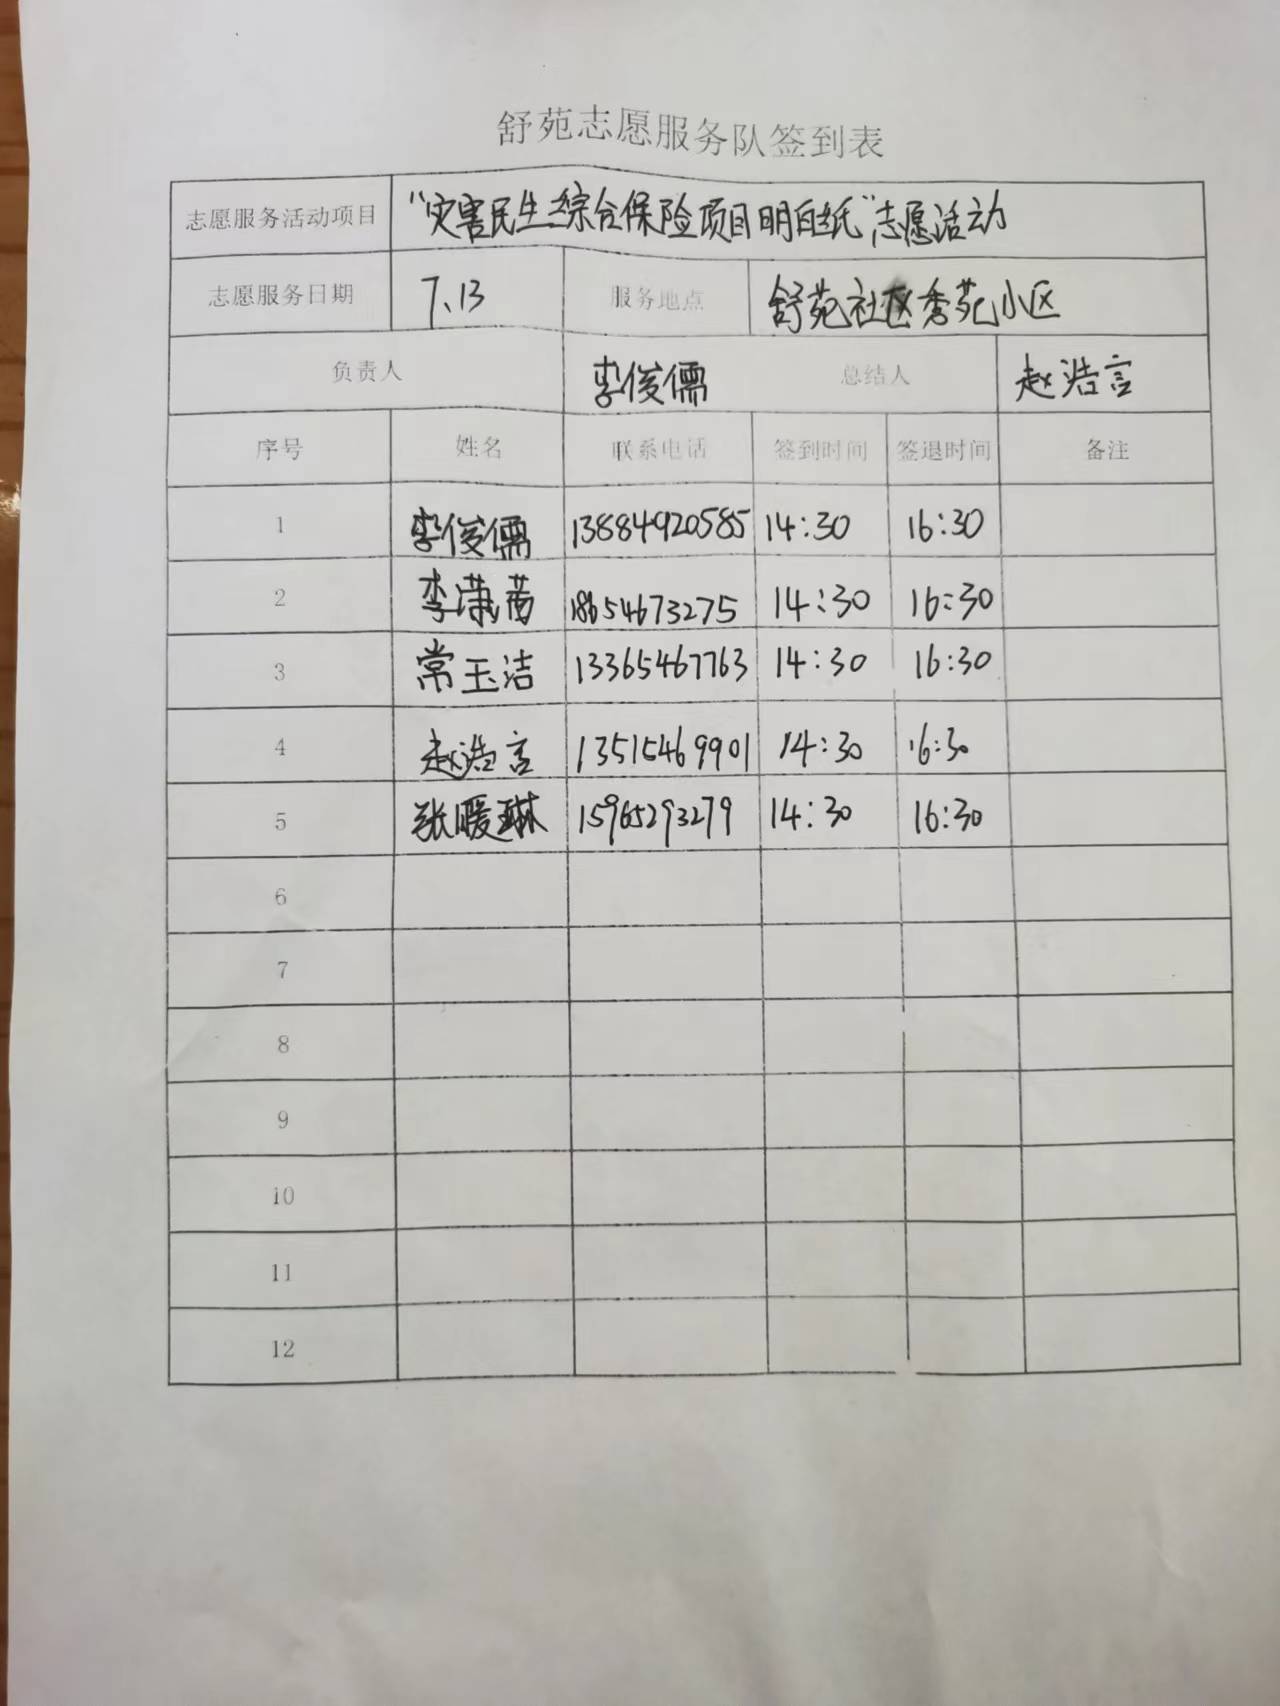 舒苑志愿服务队签到表
志愿服务活动项目 "灾害民生综合保险项目明白纸"志愿活动
志愿服务日期 7.13 服务地点 舒苑社区秀苑小区
负责人 李俊儒 总结人 赵浩言
序号 姓名 联系电话 签到时间 签退时间 备注
1 李俊儒 13884920585 14:30 16:30
2 李潇茜 18654673275 14:30 16:30
3 常玉洁 13365467763 14:30 16:30
4 赵浩言 13515469901 14:30 16:30
5 张暖琳 15965293279 14:30 16:30
6
7
8
9
10
11
12